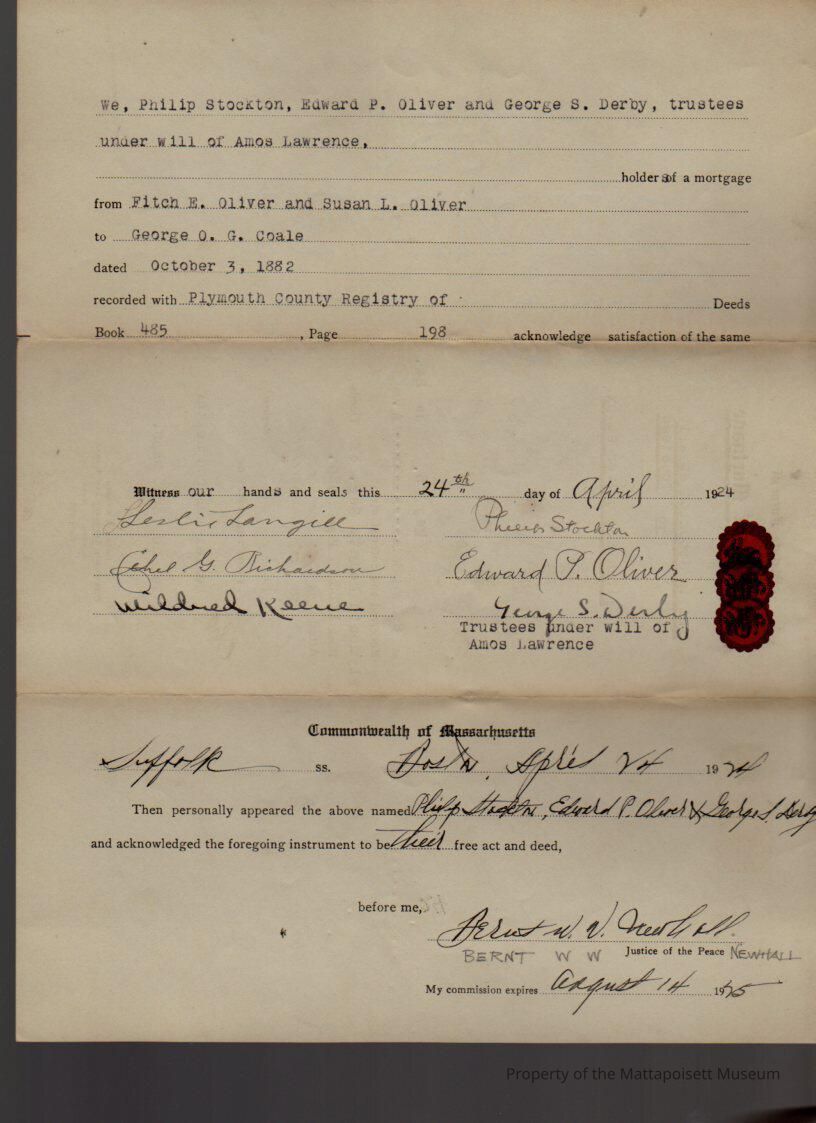 We, Philip Stockton, Edward P. Oliver and George S. Derby, trustees
under will of Amos Lawrence,
holders of a mortgage
from Fitch E. Oliver and Susan L. Oliver
to George O. G. Coale
dated October 3, 1882
recorded with Plymouth County Registry of Deeds
Book 485, Page 198 acknowledge satisfaction of the same
Witness our hands and seals this 24th day of April 1924
Leslie Langill Philip Stockton
Ethel G. Richardson Edward P. Oliver
Mildred Keene George S. Derby
Trustees under will of
Amos Lawrence
Commonwealth of Massachusetts
Suffolk ss. Boston, April 24 1924
Then personally appeared the above named Philip Stockton, Edward P. Oliver & George S. Derby
and acknowledged the foregoing instrument to be their free act and deed,
before me,
Bernt W. W. Newhall
BERNT W W Justice of the Peace NEWHALL
My commission expires August 14 1925
Property of the Mattapoisett Museum